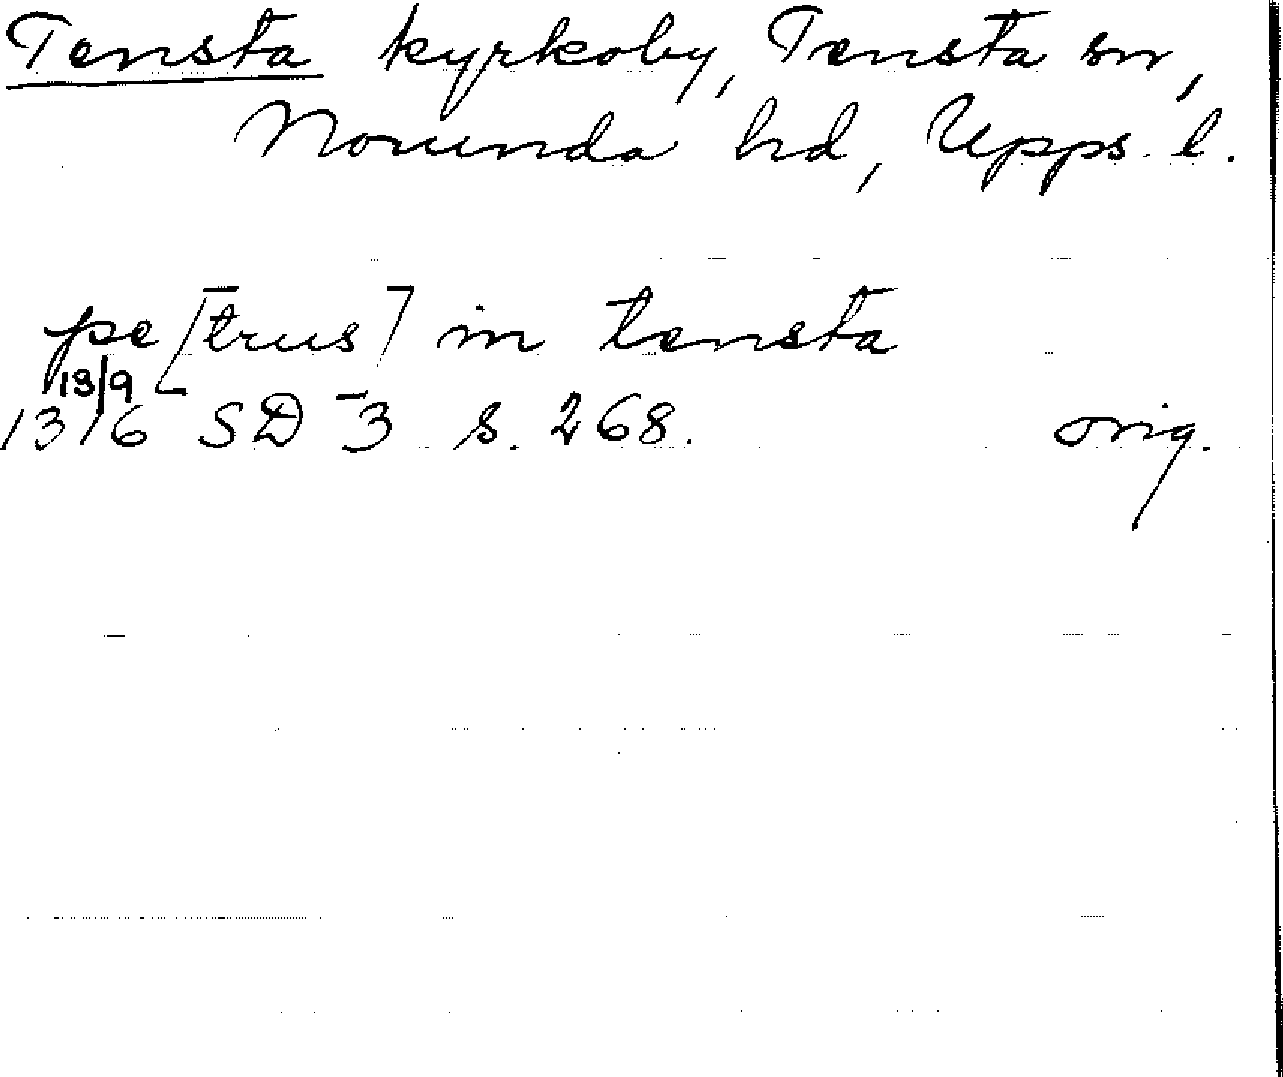 Tensta kyrkoby, Tensta sn,
Norunda hd, Upps. l.
pe[trus] in tensta
13/9
1316 SD 3 s. 268. orig.